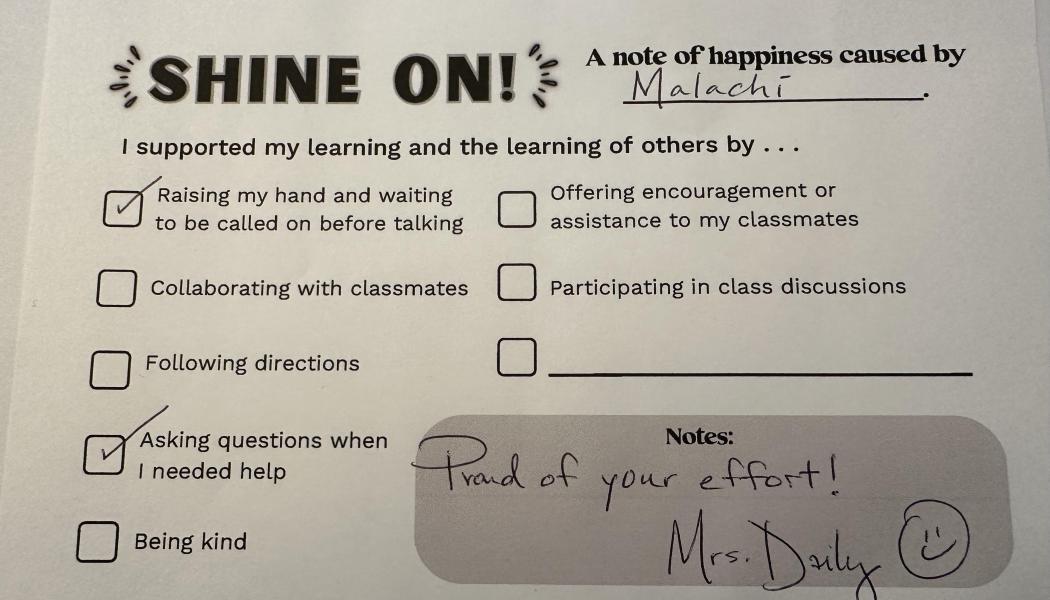 SHINE ON!
A note of happiness caused by
Malachi.
I supported my learning and the learning of others by . . .
Raising my hand and waiting
to be called on before talking
Offering encouragement or
assistance to my classmates
Collaborating with classmates
Participating in class discussions
Following directions
Asking questions when
I needed help
Being kind
Notes:
Proud of your effort!
Mrs. Daily